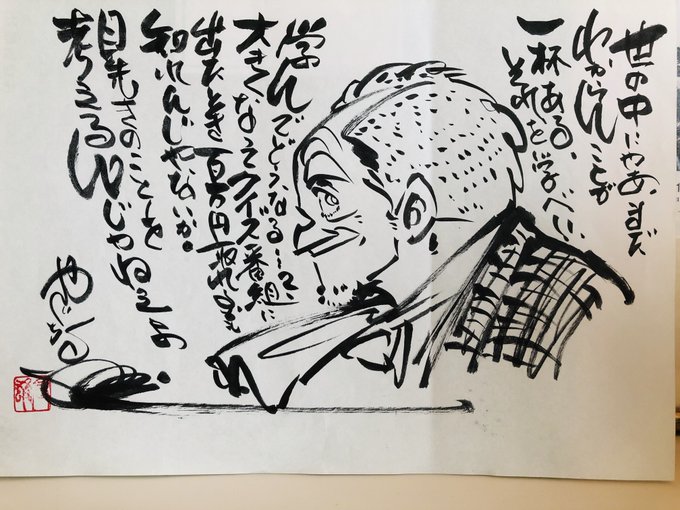 世の中にゃあ、まだ
わからんことが
一杯ある、
それを学べい、
学んでどうなる…?、
大きくなってクイズ番組に
出たとき百万円
知れんじゃないか。
目先きのことを
考えるんじゃねえよ